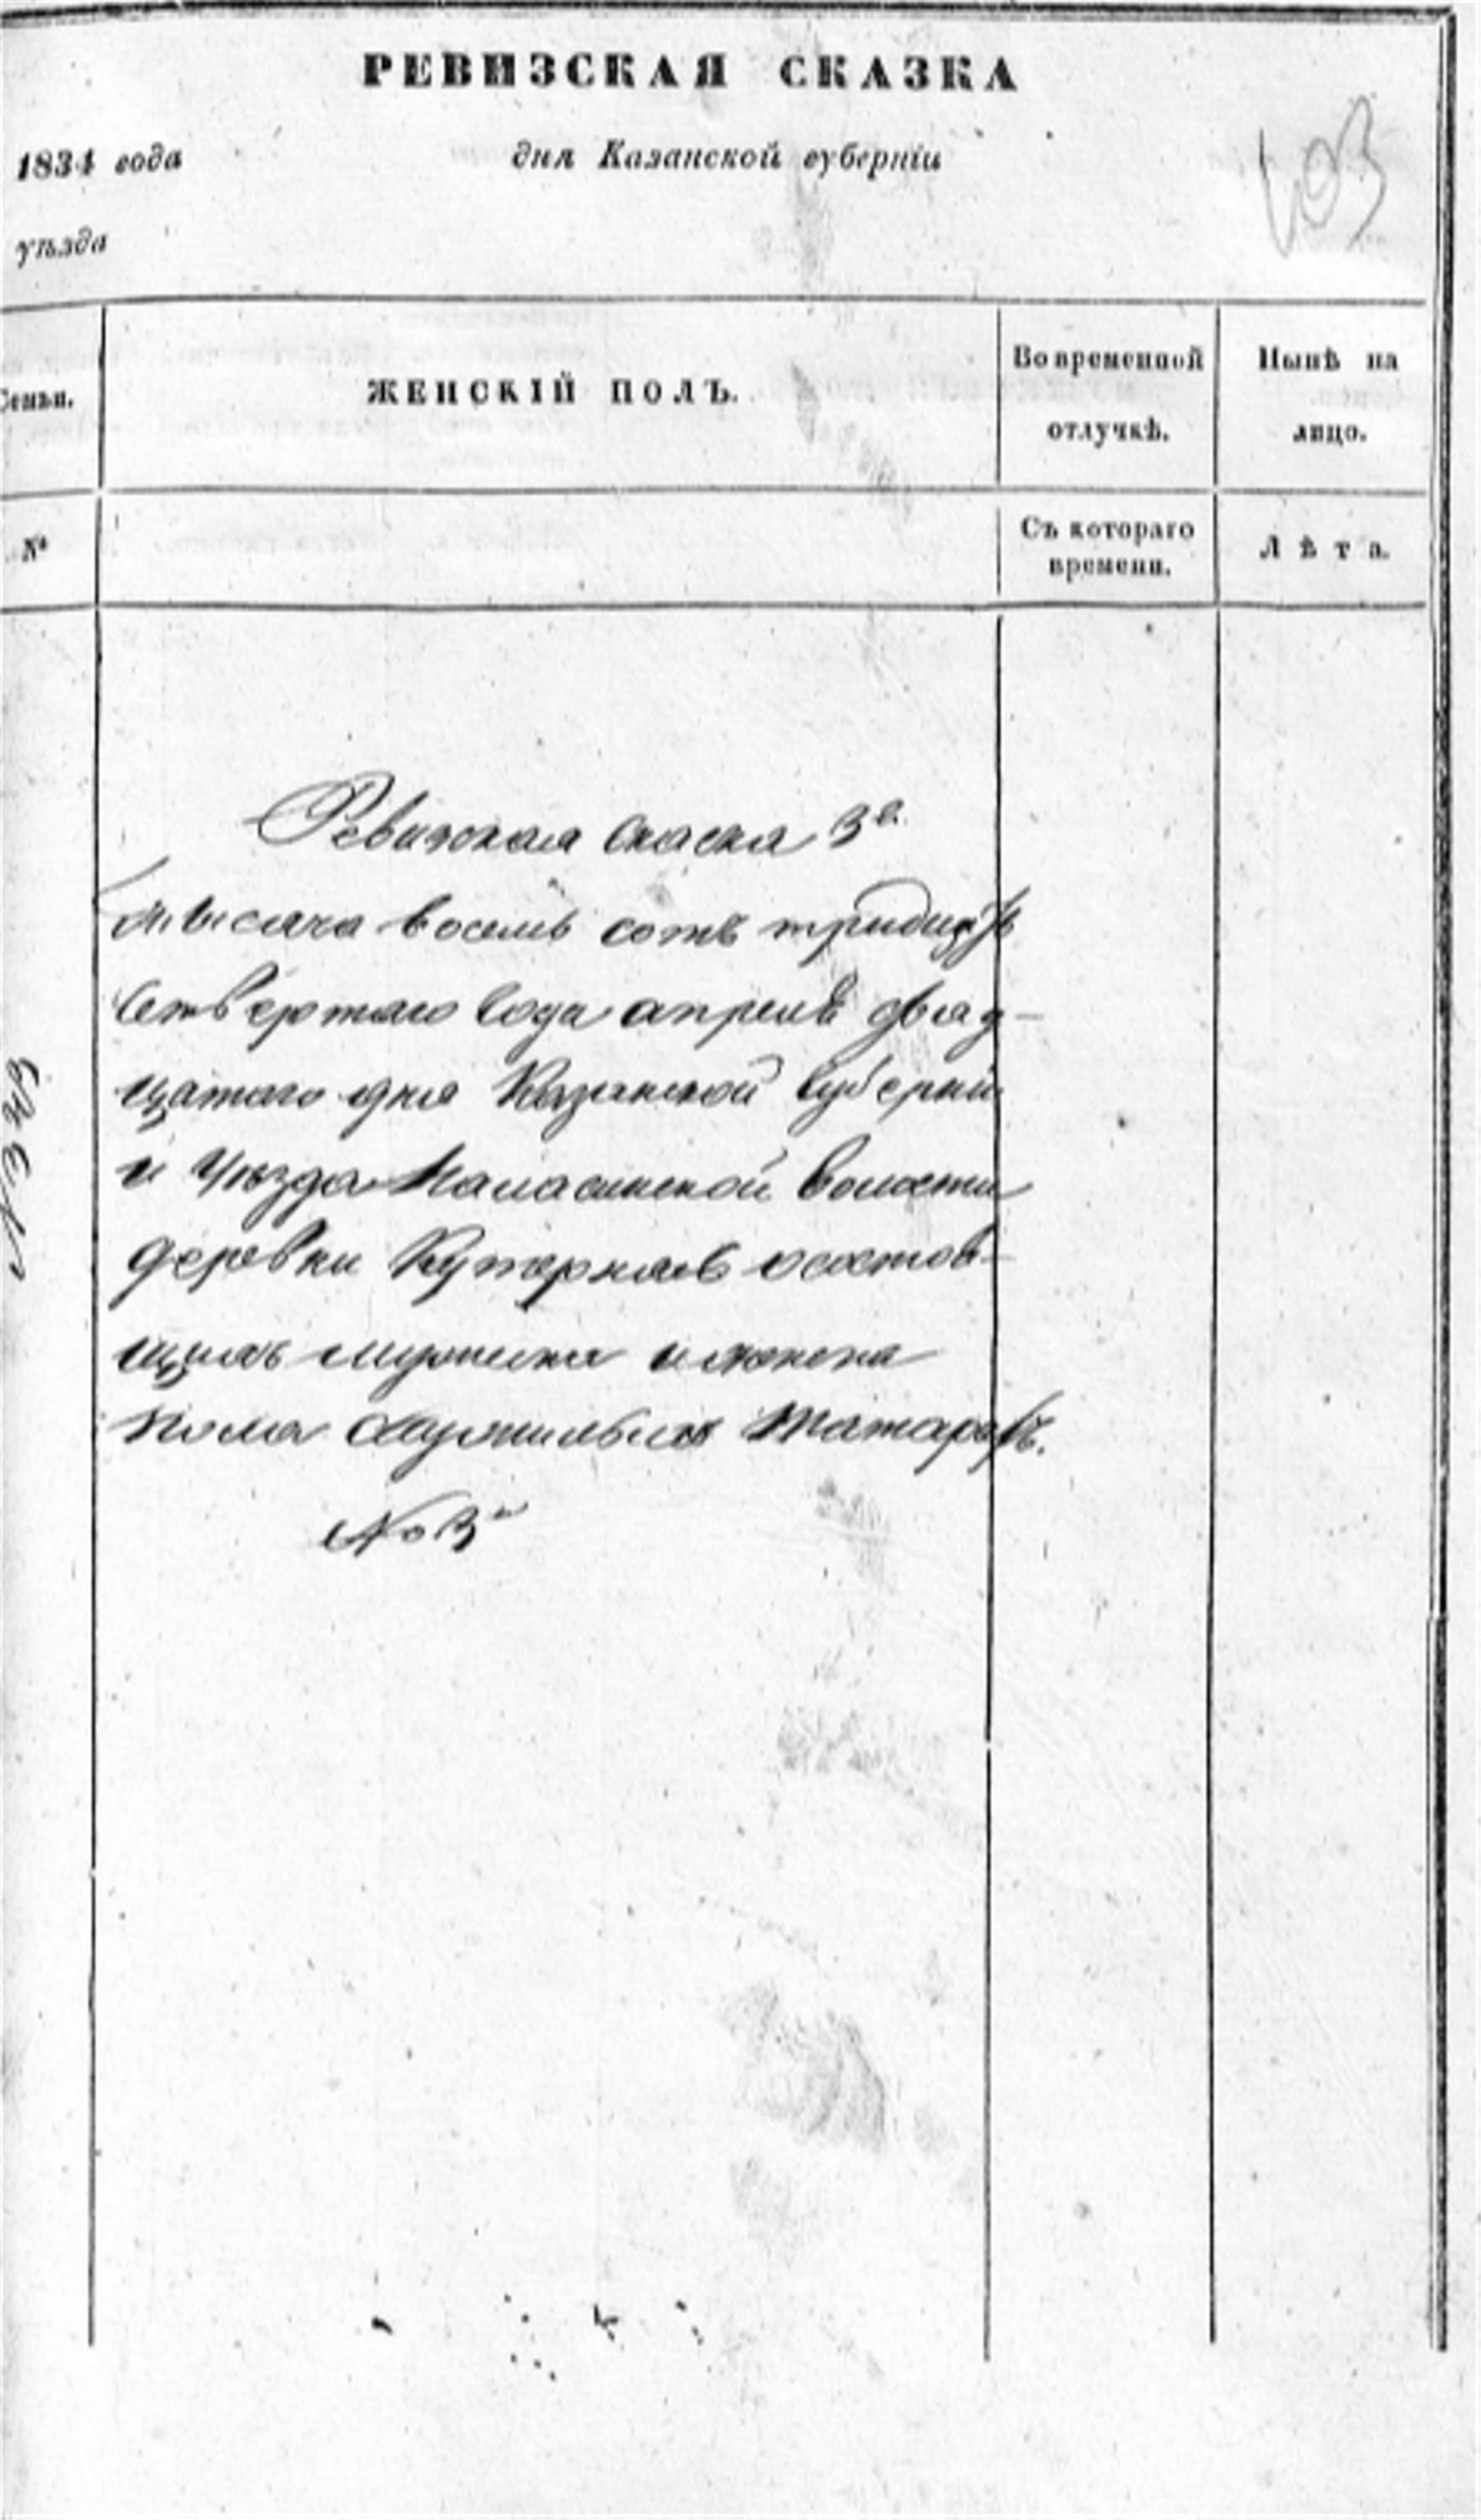 РЕВИЗСКАЯ СКАЗКА
1834 года дня Казанской губерніи
уѣзда
103
Семьи. ЖЕНСКІЙ ПОЛЪ. Во временной отлучкѣ. Нынѣ на лицо.
№ Съ котораго времени. Лѣта.
Ревизская скаска 3я
тысяча восемь сотъ тридцать
четвертаго года апреля двад-
цатаго дня Казанской губерніи
и уѣзда волости
деревни состоя-
щихъ мужеска и женска
пола служилыхъ Татаръ.
№ 3й